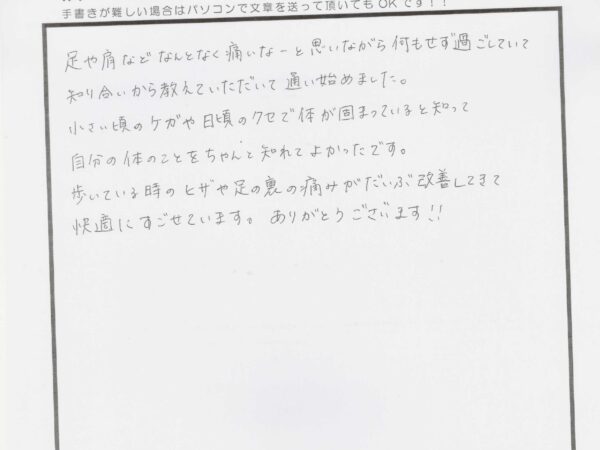 手書きが難しい場合はパソコンで文章を送って頂いてもOKです！！
足や肩などなんとなく痛いなーと思いながら何もせず過ごしていて
知り合いから教えていただいて通い始めました。
小さい頃のケガや日頃のクセで体が固まっていると知って
自分の体のことをちゃんと知れてよかったです。
歩いている時のヒザや足の裏の痛みがだいぶ改善してきて
快適にすごせています。ありがとうございます!!